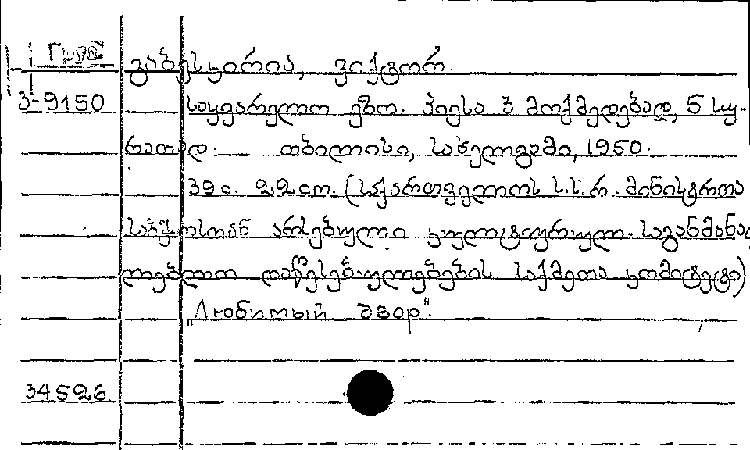 გაბესკირია, ვიქტორ
პ-9150
საყვარელო ეზო. პიესა 3 მოქმედებად, 5 სუ-
რათად. თბილისი, სახელგამი, 1950.
39 გ. 22 სმ. (საქართველოს ს.ს.რ. მინისტრთა
საბჭოსთან არსებული კულტურულ-საგანმანათ
ლებლო დაწესებულებების საქმეთა კომიტეტი)
„Любимый двор".
34526